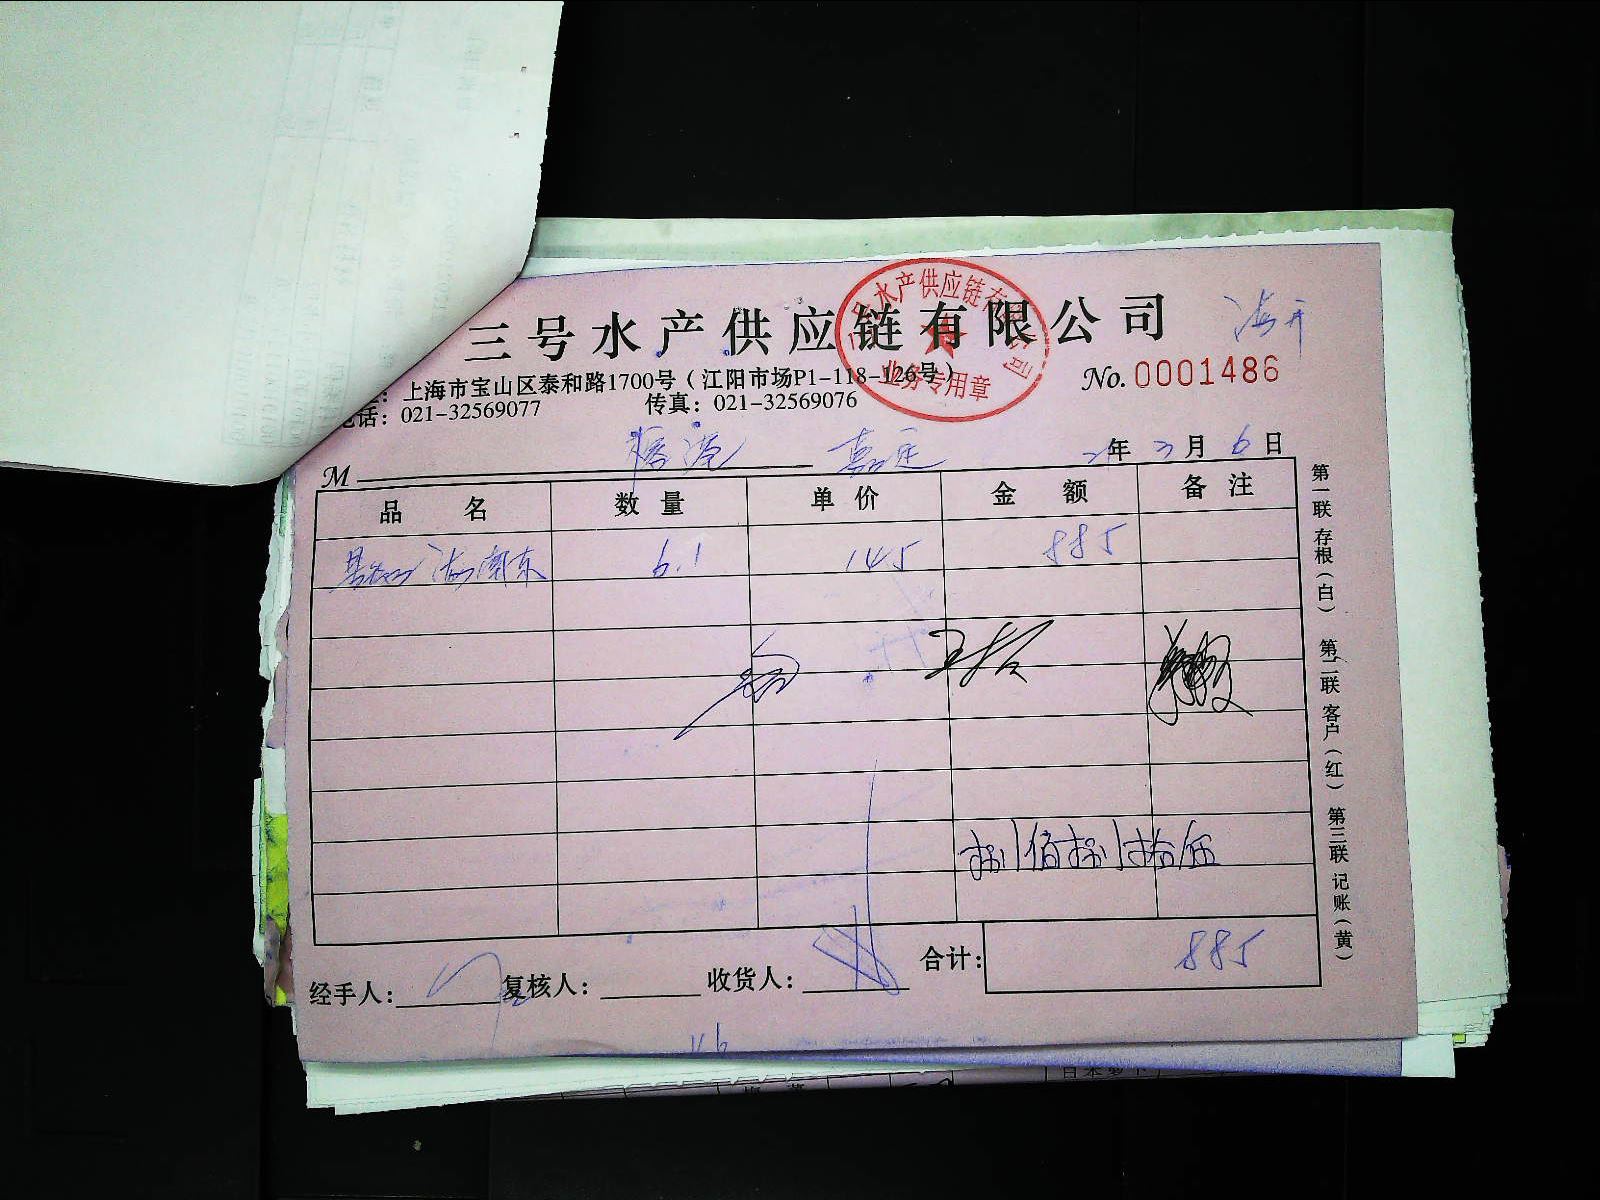 三号水产供应链有限公司
上海市宝山区泰和路1700号（江阳市场P1-118-126号）
No.0001486
电话：021-32569077 传真：021-32569076
水产供应链有
业务专用章
M 嘉定 21年3月6日
品名 数量 单价 金额 备注
6.1 145 885
捌佰捌拾伍
合计：885
经手人： 复核人： 收货人：
第一联存根（白） 第二联客户（红） 第三联记账（黄）